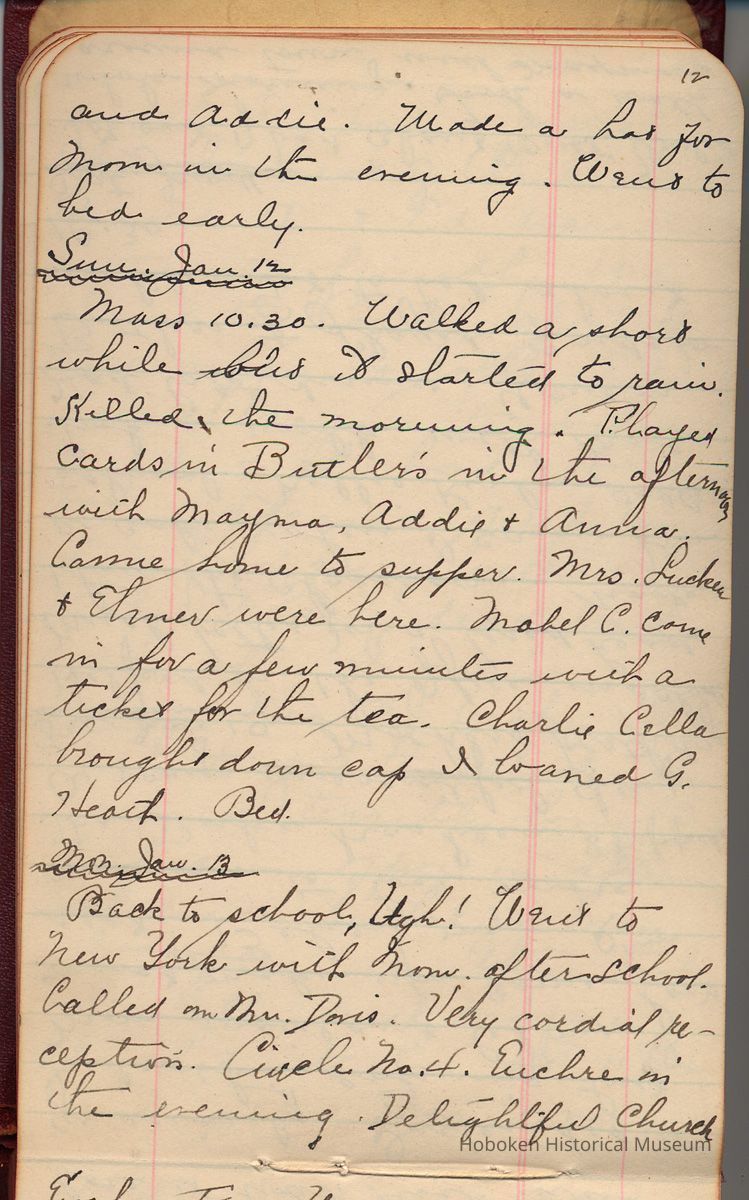 12
and Addie. Made a hat for
Mom in the evening. Went to
bed early.
Sun. Jan. 12
Mass 10.30. Walked a short
while but it started to rain.
Killed the morning. Played
cards in Butler's in the afternoon
with Mayma, Addie & Anna.
Came home to supper. Mrs. Lucken
& Elmer were here. Mabel C. came
in for a few minutes with a
ticket for the tea. Charlie Cella
brought down cap I loaned G.
Heath. Bed.
Mon. Jan. 13
Back to school, Ugh! Went to
New York with Mom. after school.
Called on Mr. Davis. Very cordial re-
ception. Circle No. 4. Euchre in
the evening. Delightful Church
Hoboken Historical Museum